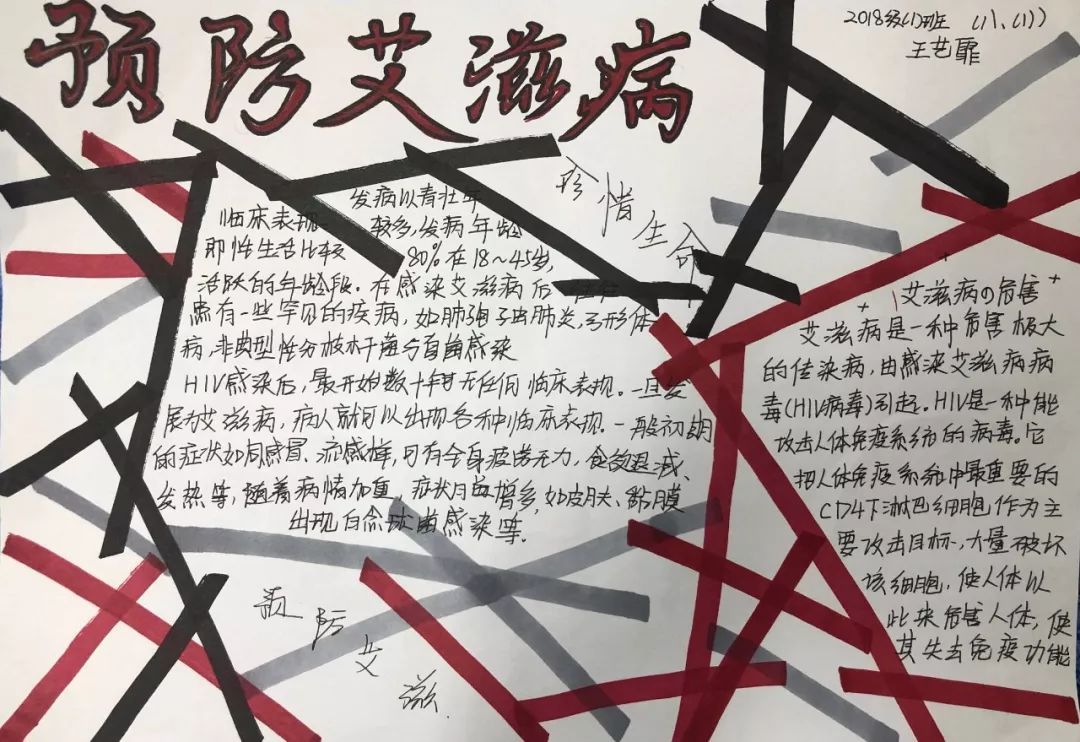 预防艾滋病
2018级(1)班
王艺霏
珍惜生命
发病以青壮年
临床表现
较多,发病年龄
即性生活比较
80%在18~45岁,
活跃的年龄段。在感染艾滋病后
患有一些罕见的疾病,如肺孢子虫肺炎,弓形体
病,非典型性分枝杆菌与真菌感染
HIV感染后,最开始数十年无任何临床表现。一旦发
展为艾滋病,病人就可以出现各种临床表现。一般初期
的症状如同感冒、流感样,可有全身疲劳无力,食欲退减、
发热等,随着病情加重,症状日益增多,如皮肤、黏膜
出现白念球菌感染等.
艾滋病の危害
艾滋病是一种危害极大
的传染病,由感染艾滋病病
毒(HIV病毒)引起。HIV是一种能
攻击人体免疫系统的病毒。它
把人体免疫系统中最重要的
CD4T淋巴细胞作为主
要攻击目标,大量破坏
该细胞,使人体以
此来危害人体,使
其失去免疫功能
预防艾滋